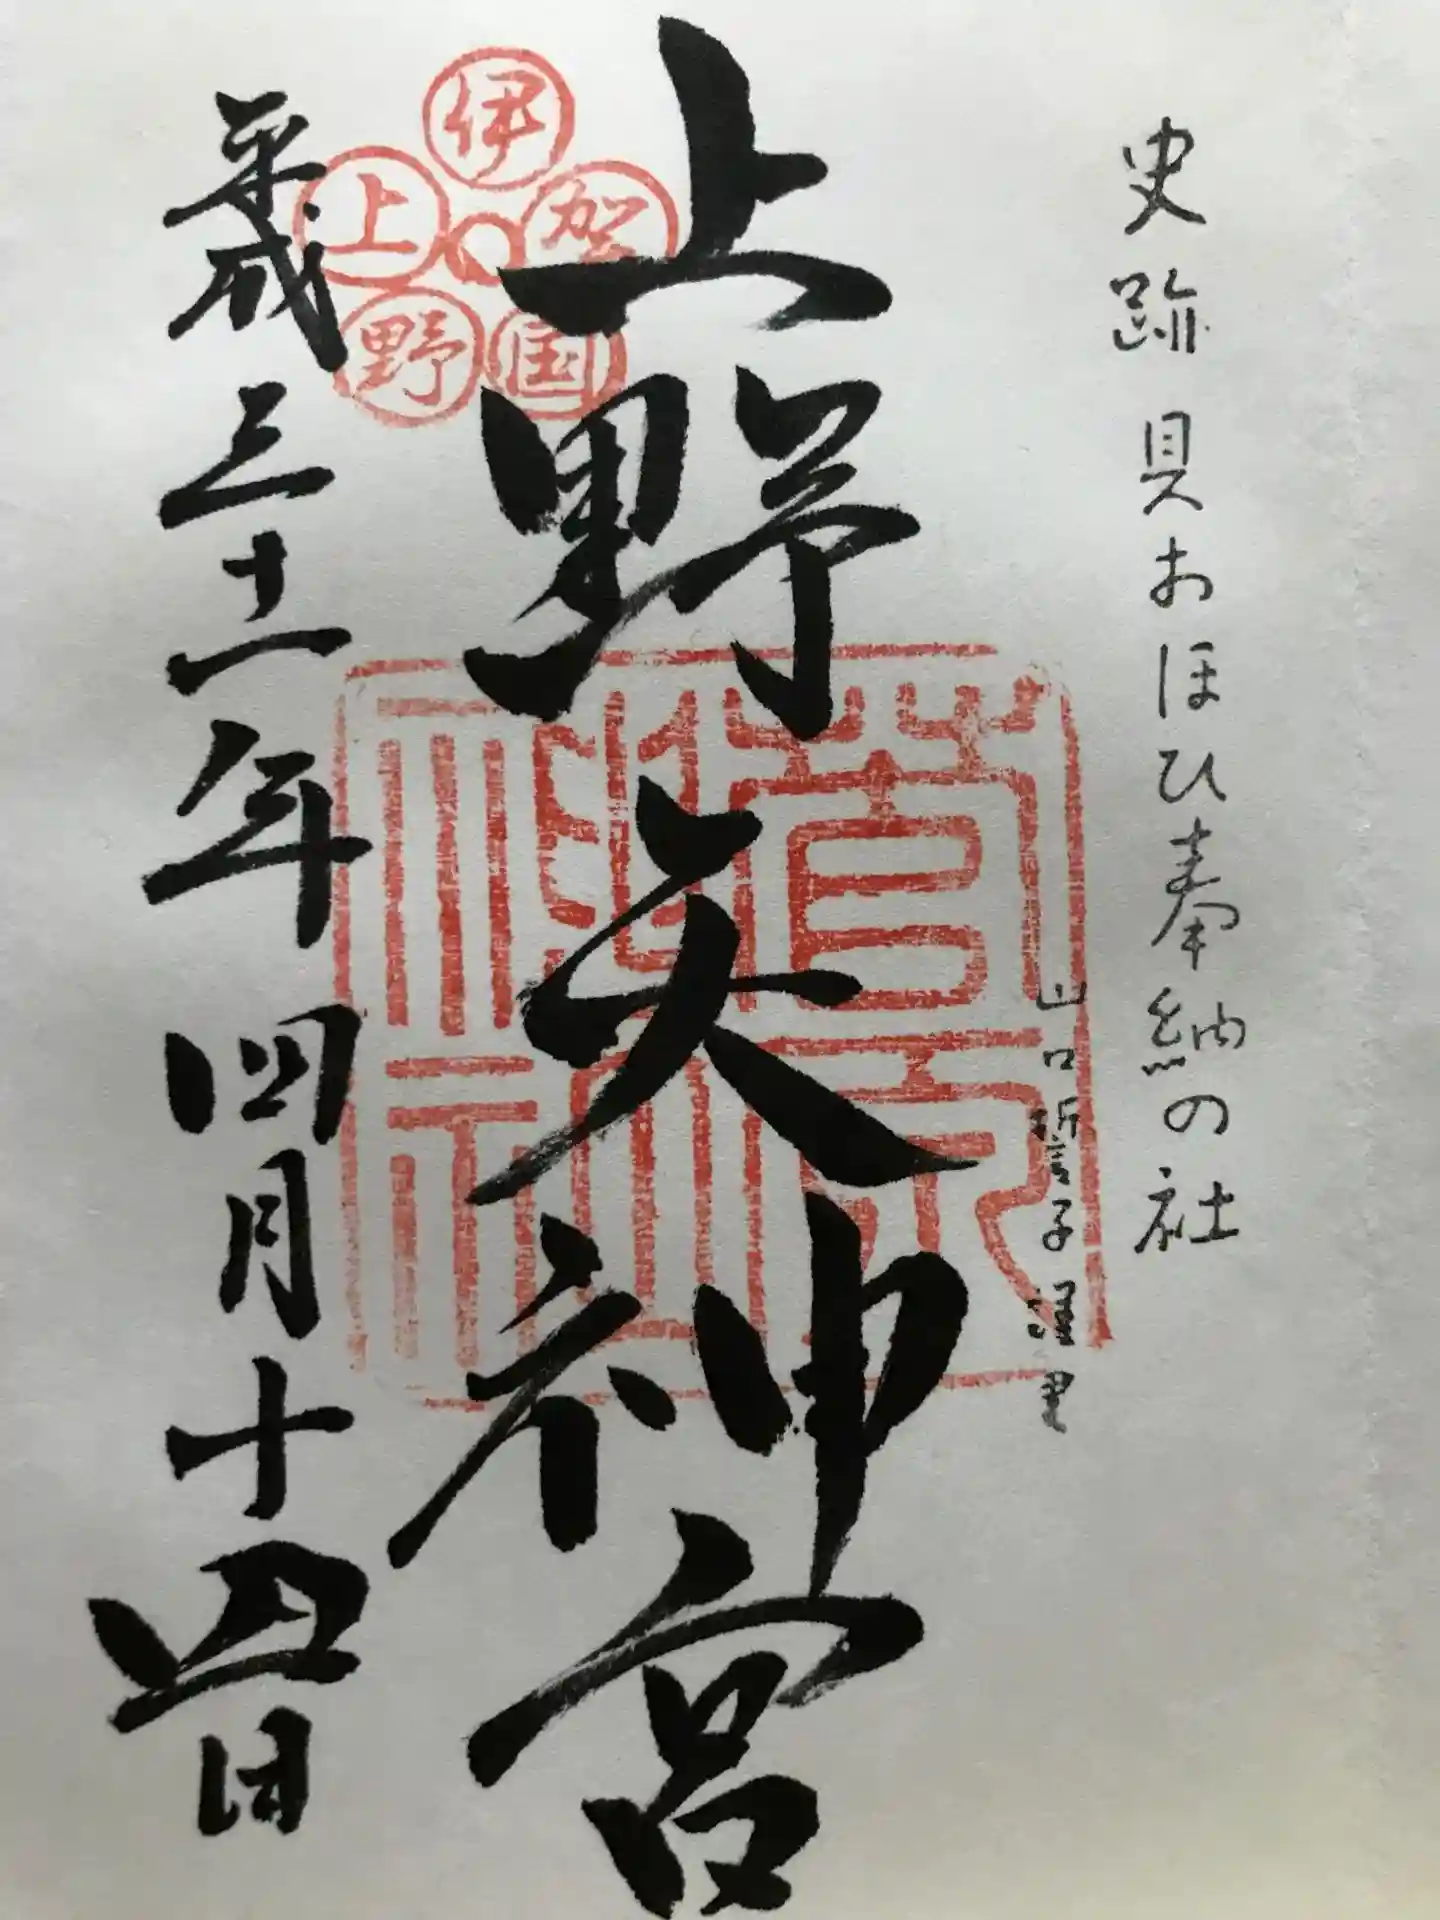 史跡 貝おほひ奉納の社
山口誓子 謹書
上野天神宮
伊賀国上野
菅原神社
平成三十一年四月十四日